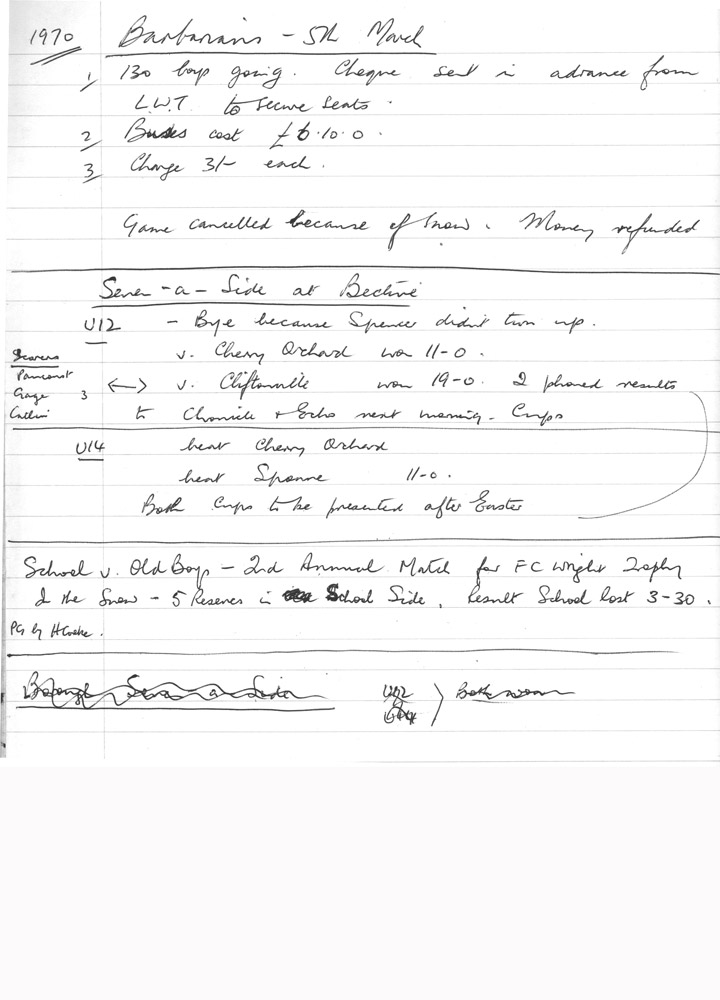 1970 Barbarians - 5th March
1 130 boys going. Cheque sent in advance from
L.W.T. to secure seats.
2 Buses cost £6.10.0.
3 Charge 3/- each.
Game cancelled because of Snow. Money refunded
Seven-a-Side at Bective
U12 - Bye because Spencer didn't turn up.
Scorers v. Cherry Orchard won 11-0.
v. Cliftonville won 19-0. I phoned results
Gage 3
to Chronicle & Echo next morning. Cups
U14 beat Cherry Orchard
beat Sponne 11-0.
Both Cups to be presented after Easter
School v. Old Boys - 2nd Annual Match for FC Wright Trophy
In the Snow - 5 Reserves in School Side. Result School lost 3-30.
PG by H
Seven a Side U12 Both won
U14